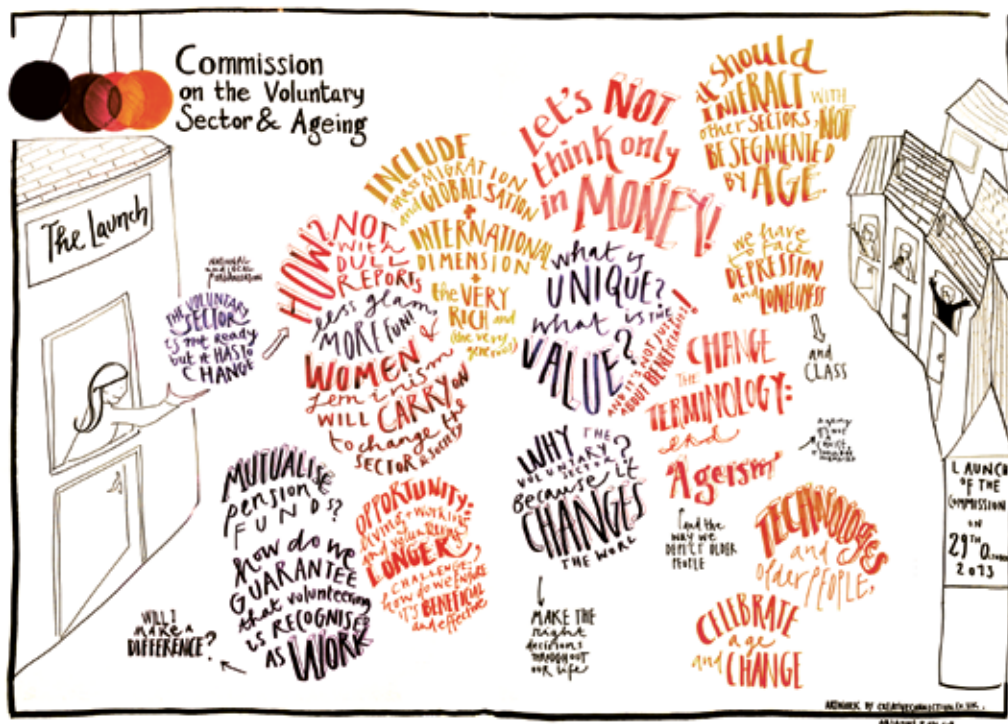 Commission
on the Voluntary
Sector & Ageing
The Launch
THE VOLUNTARY
SECTOR
is not Ready
but it HAS to
CHANGE
HOW? NOT
With
DULL
REPORTS
less glam
MORE FUN!
WOMEN &
feminism
WILL CARRY ON
to change the
SECTOR & SOCIETY
INCLUDE
mass MIGRATION
and GLOBALISATION
+
INTERNATIONAL
DIMENSION
+
the VERY
RICH and
(the very
generous)
Let's NOT
think only
in MONEY!
it should
INTERACT WITH
other SECTORS, NOT
BE SEGMENTED
BY AGE.
we have
to FACE
DEPRESSION
and LONELINESS
and
CLASS
what is
UNIQUE?
what is THE
VALUE?
AND IT'S NOT JUST
ABOUT BENEFICIARIES!
CHANGE
THE
TERMINOLOGY:
end
"Ageism"
and the
way we
DEPICT OLDER
PEOPLE
WHY THE
VOLUNTARY
SECTOR?
Because it
CHANGES
THE WORL
MAKE THE
right
decisions
THROUGHOUT
OUR LIFE
MUTUALISE
pension
FUNDS?
how do we
GUARANTEE
that volunteering
is RECOGNISED
AS WORK
WILL I
MAKE A
DIFFERENCE?
OPPORTUNITY:
living + working
and volunteering
LONGER,
CHALLENGE:
how do we ENSURE
it's BENEFICIAL
and effective
TECHNOLOGIES
and
older PEOPLE,
CELEBRATE
age
and CHANGE
LAUNCH
OF THE
COMMISSION
ON
29TH October
2013
ARTWORK BY CREATIVECONNECTION.CO.UK.